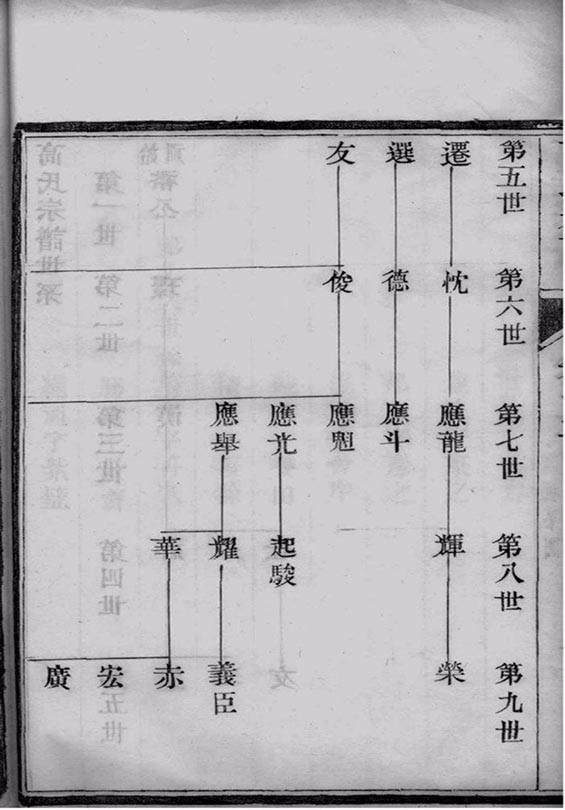 第五世
遷
選
友
第六世
忱
德
俊
第七世
應龍
應斗
應魁
應光
應舉
第八世
輝
起駿
耀
華
第九世
榮
義臣
赤
宏
廣